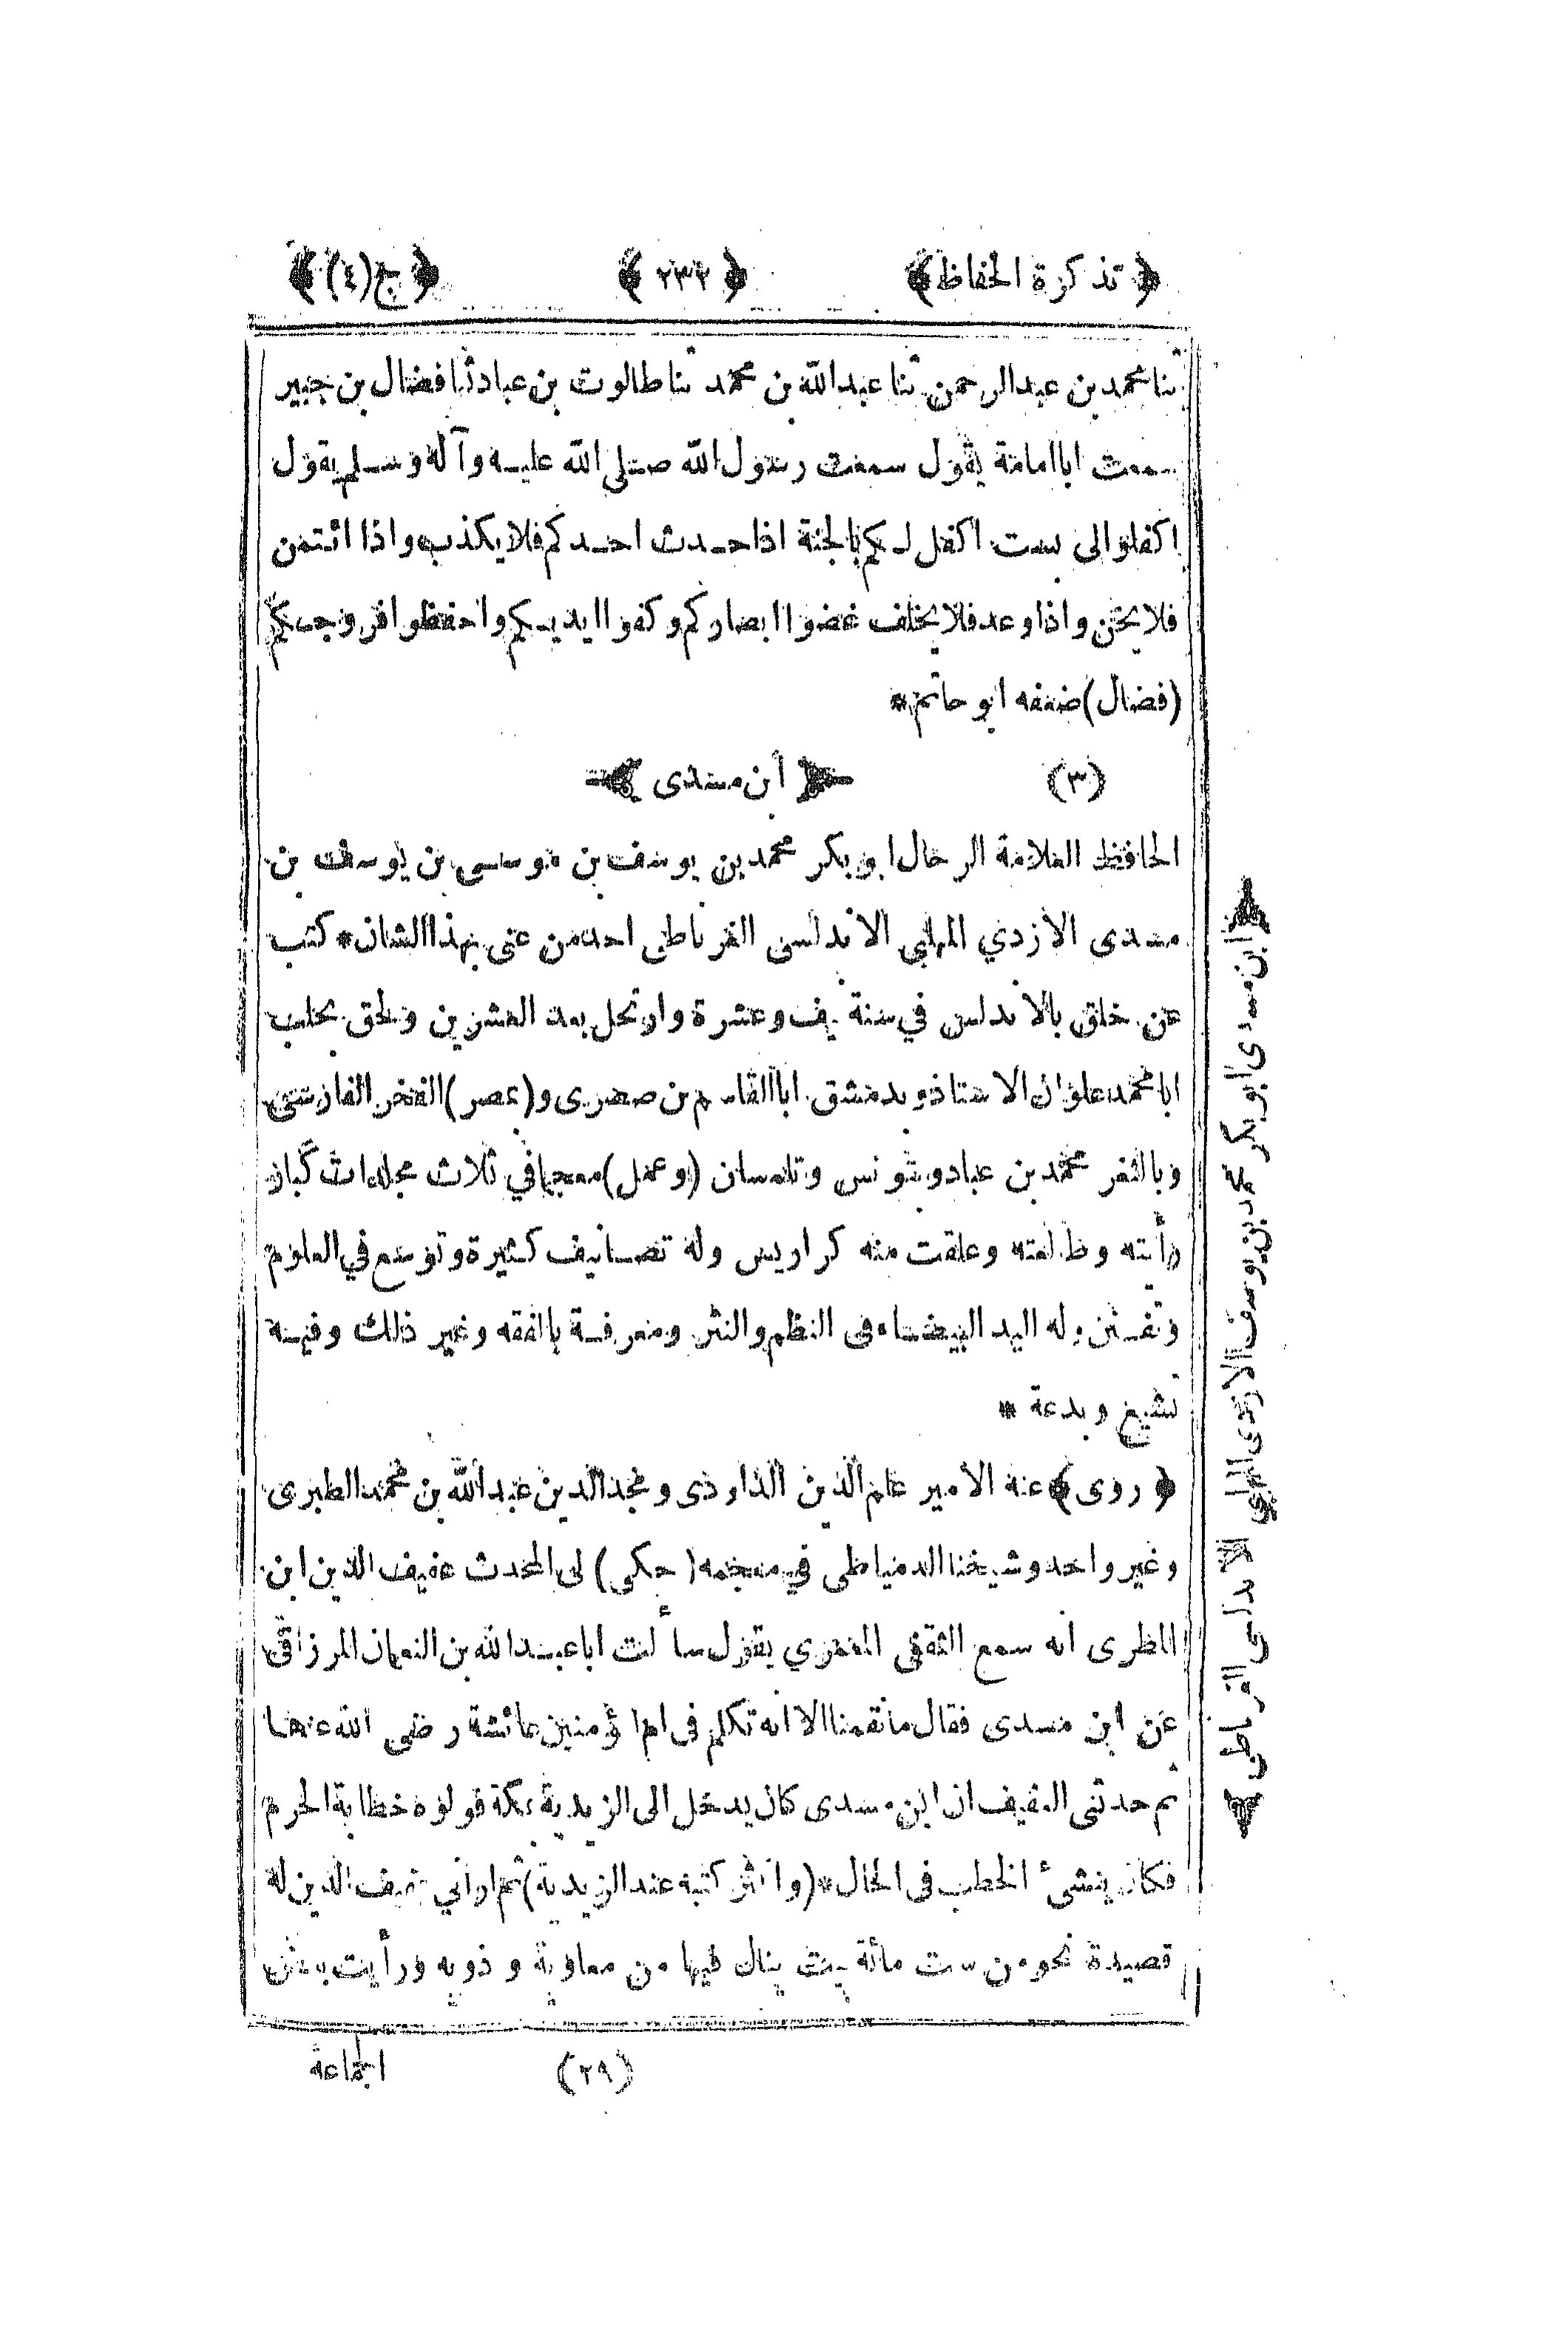 ﴿ تذكرة الحفاظ ﴾ ﴿ ٢٣٣ ﴾ ﴿ ج (٤) ﴾
ثنا محمد بن عبد الرحمن ثنا عبد الله بن محمد ثنا طالوت بن عباد ثنا فضال بن جبير
سمعت ابا امامة يقول سمعت رسول الله صلى الله عليه وآله وسلم يقول
اكفلوا لى بست اكفل لكم بالجنة اذا حدث احدكم فلا يكذب واذا ائتمن
فلا يخن واذا وعد فلا يخلف غضوا ابصاركم وكفوا ايديكم واحفظوا فروجكم
(فضال) ضعفه ابو حاتم *
(٣) ابن مسدى
الحافظ العلامة الرحال ابو بكر محمد بن يوسف بن موسى بن يوسف بن
مسدى الأزدي المهلبي الاندلسى الغرناطى احد من عنى بهذا الشان * كتب
عن خلق بالاندلس في سنة نيف وعشرة وارتحل بعد العشرين ولحق بحلب
ابا محمد علوان الاستاذ وبدمشق ابا القاسم بن صصرى و (بمصر) الفخر الفارسى
وبالثغر محمد بن عباد وبتونس وتلمسان (وعمل) معجما في ثلاث مجلدات كبار
رأيته وطالعته وعلقت منه كراريس وله تصانيف كثيرة وتوسع في العلوم
وتفنن وله اليد البيضاء فى النظم والنثر ومعرفة بالفقه وغير ذلك وفيه
تشيع وبدعة *
﴿ روى ﴾ عنه الأمير علم الدين الداوذى ومجد الدين عبد الله بن محمد الطبرى
وغير واحد وشيخنا الدمياطى في معجمه (حكى) لى المحدث عفيف الدين ابن
المطرى انه سمع التقى المعمري يقول سألت ابا عبد الله بن النعمان المرزاقى
عن ابن مسدى فقال ما نقمنا الا انه تكلم فى ام المؤمنين عائشة رضى الله عنها
ثم حدثنى العفيف ان ابن مسدى كان يدخل الى الزيدية بمكة فولوه خطابة الحرم
فكان ينشئ الخطب فى الحال * (واكثر كتبه عند الزيدية) ثم ارانى عفيف الدين له
قصيدة نحو من ست مائة بيت ينال فيها من معاوية وذويه ورأيت بعض
(٢٩) الجماعة
ابن مسدى ابو بكر محمد بن يوسف الازدى المهلبى الاندلسى الغرناطى